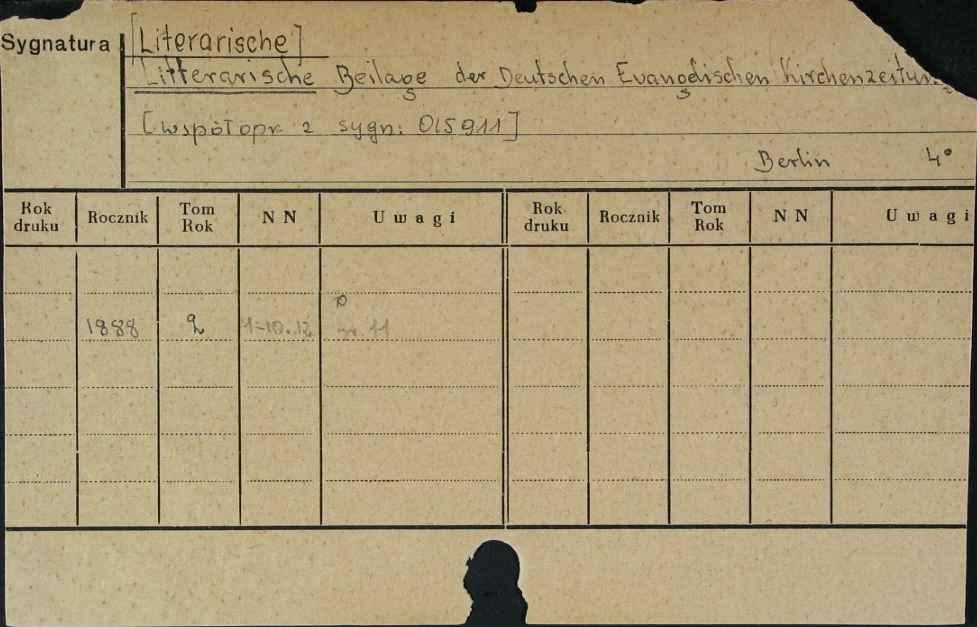 Sygnatura
[Literarische]
Litterarische Beilage der Deutschen Evangelischen Kirchenzeitung
[współopr z sygn: 015911]
Berlin 4°
Rok druku Rocznik Tom Rok NN Uwagi Rok druku Rocznik Tom Rok NN Uwagi
1888 2 1-10.12 nr. 11